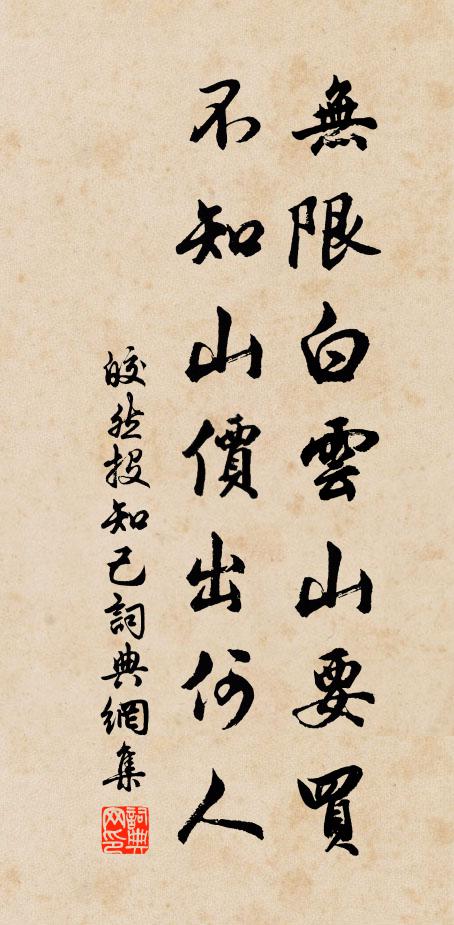 無限白雲山要買
不知山價出何人
皎然投知己詞典網集
詞典网印